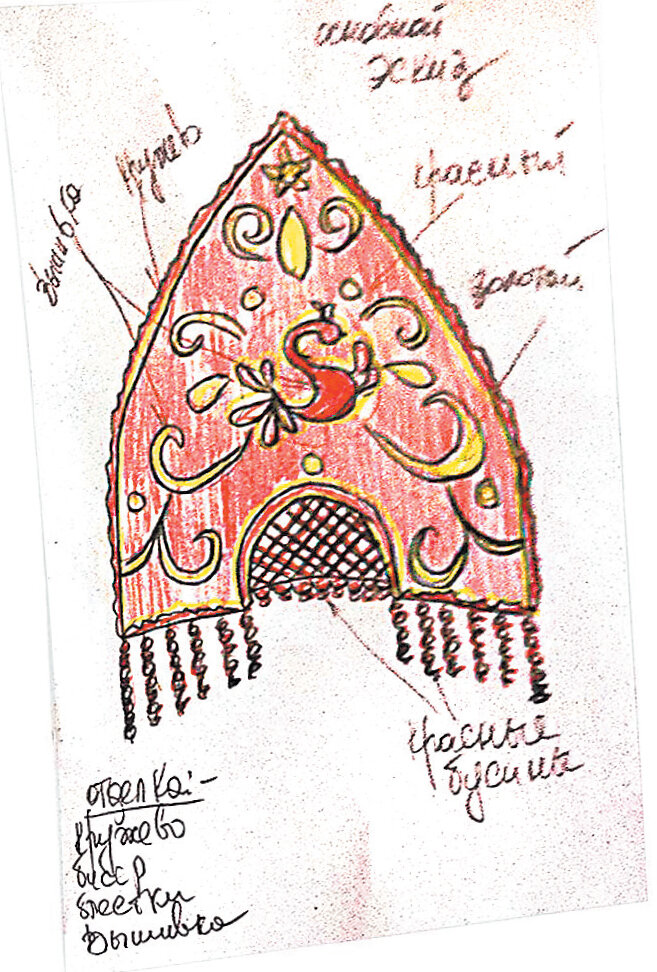 основной
эскиз
кружево
вышивка
красный
золотой
красные
бусины
отделка:-
кружево
бисер
блестки
Вышивка